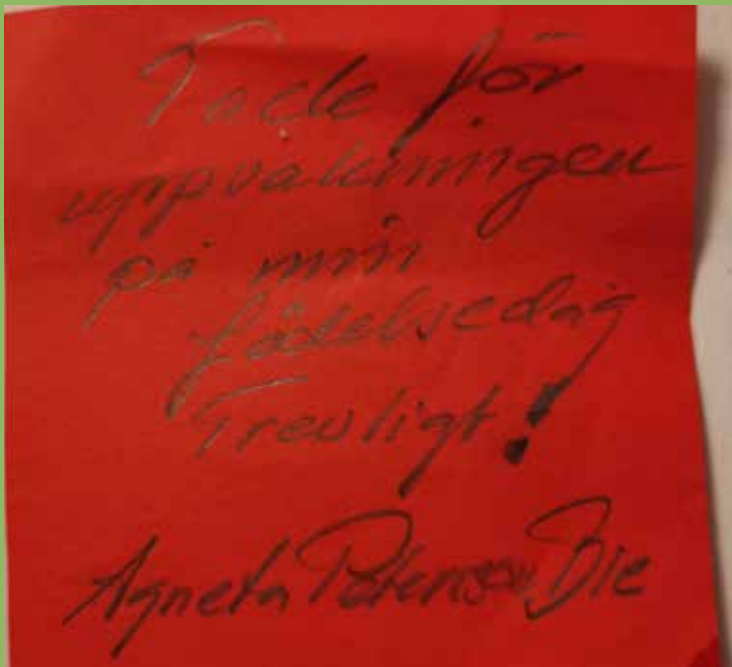 Tack för
uppvaktningen
på min
födelsedag
Trevligt!
Agneta Petersen Bie